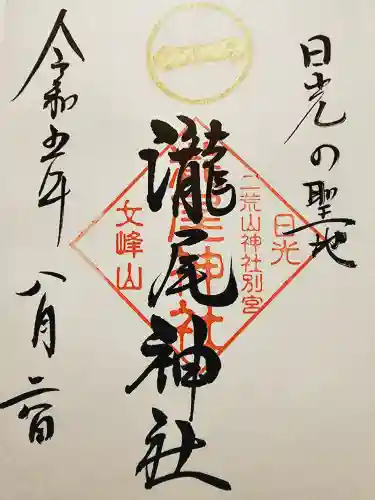 日光の聖地
瀧尾神社
日光
二荒山神社別宮
瀧尾神社
文峰山
令和五年
八月二日